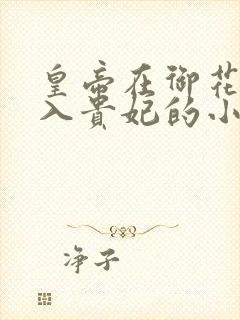 皇帝在御花
入贵妃的小
净子